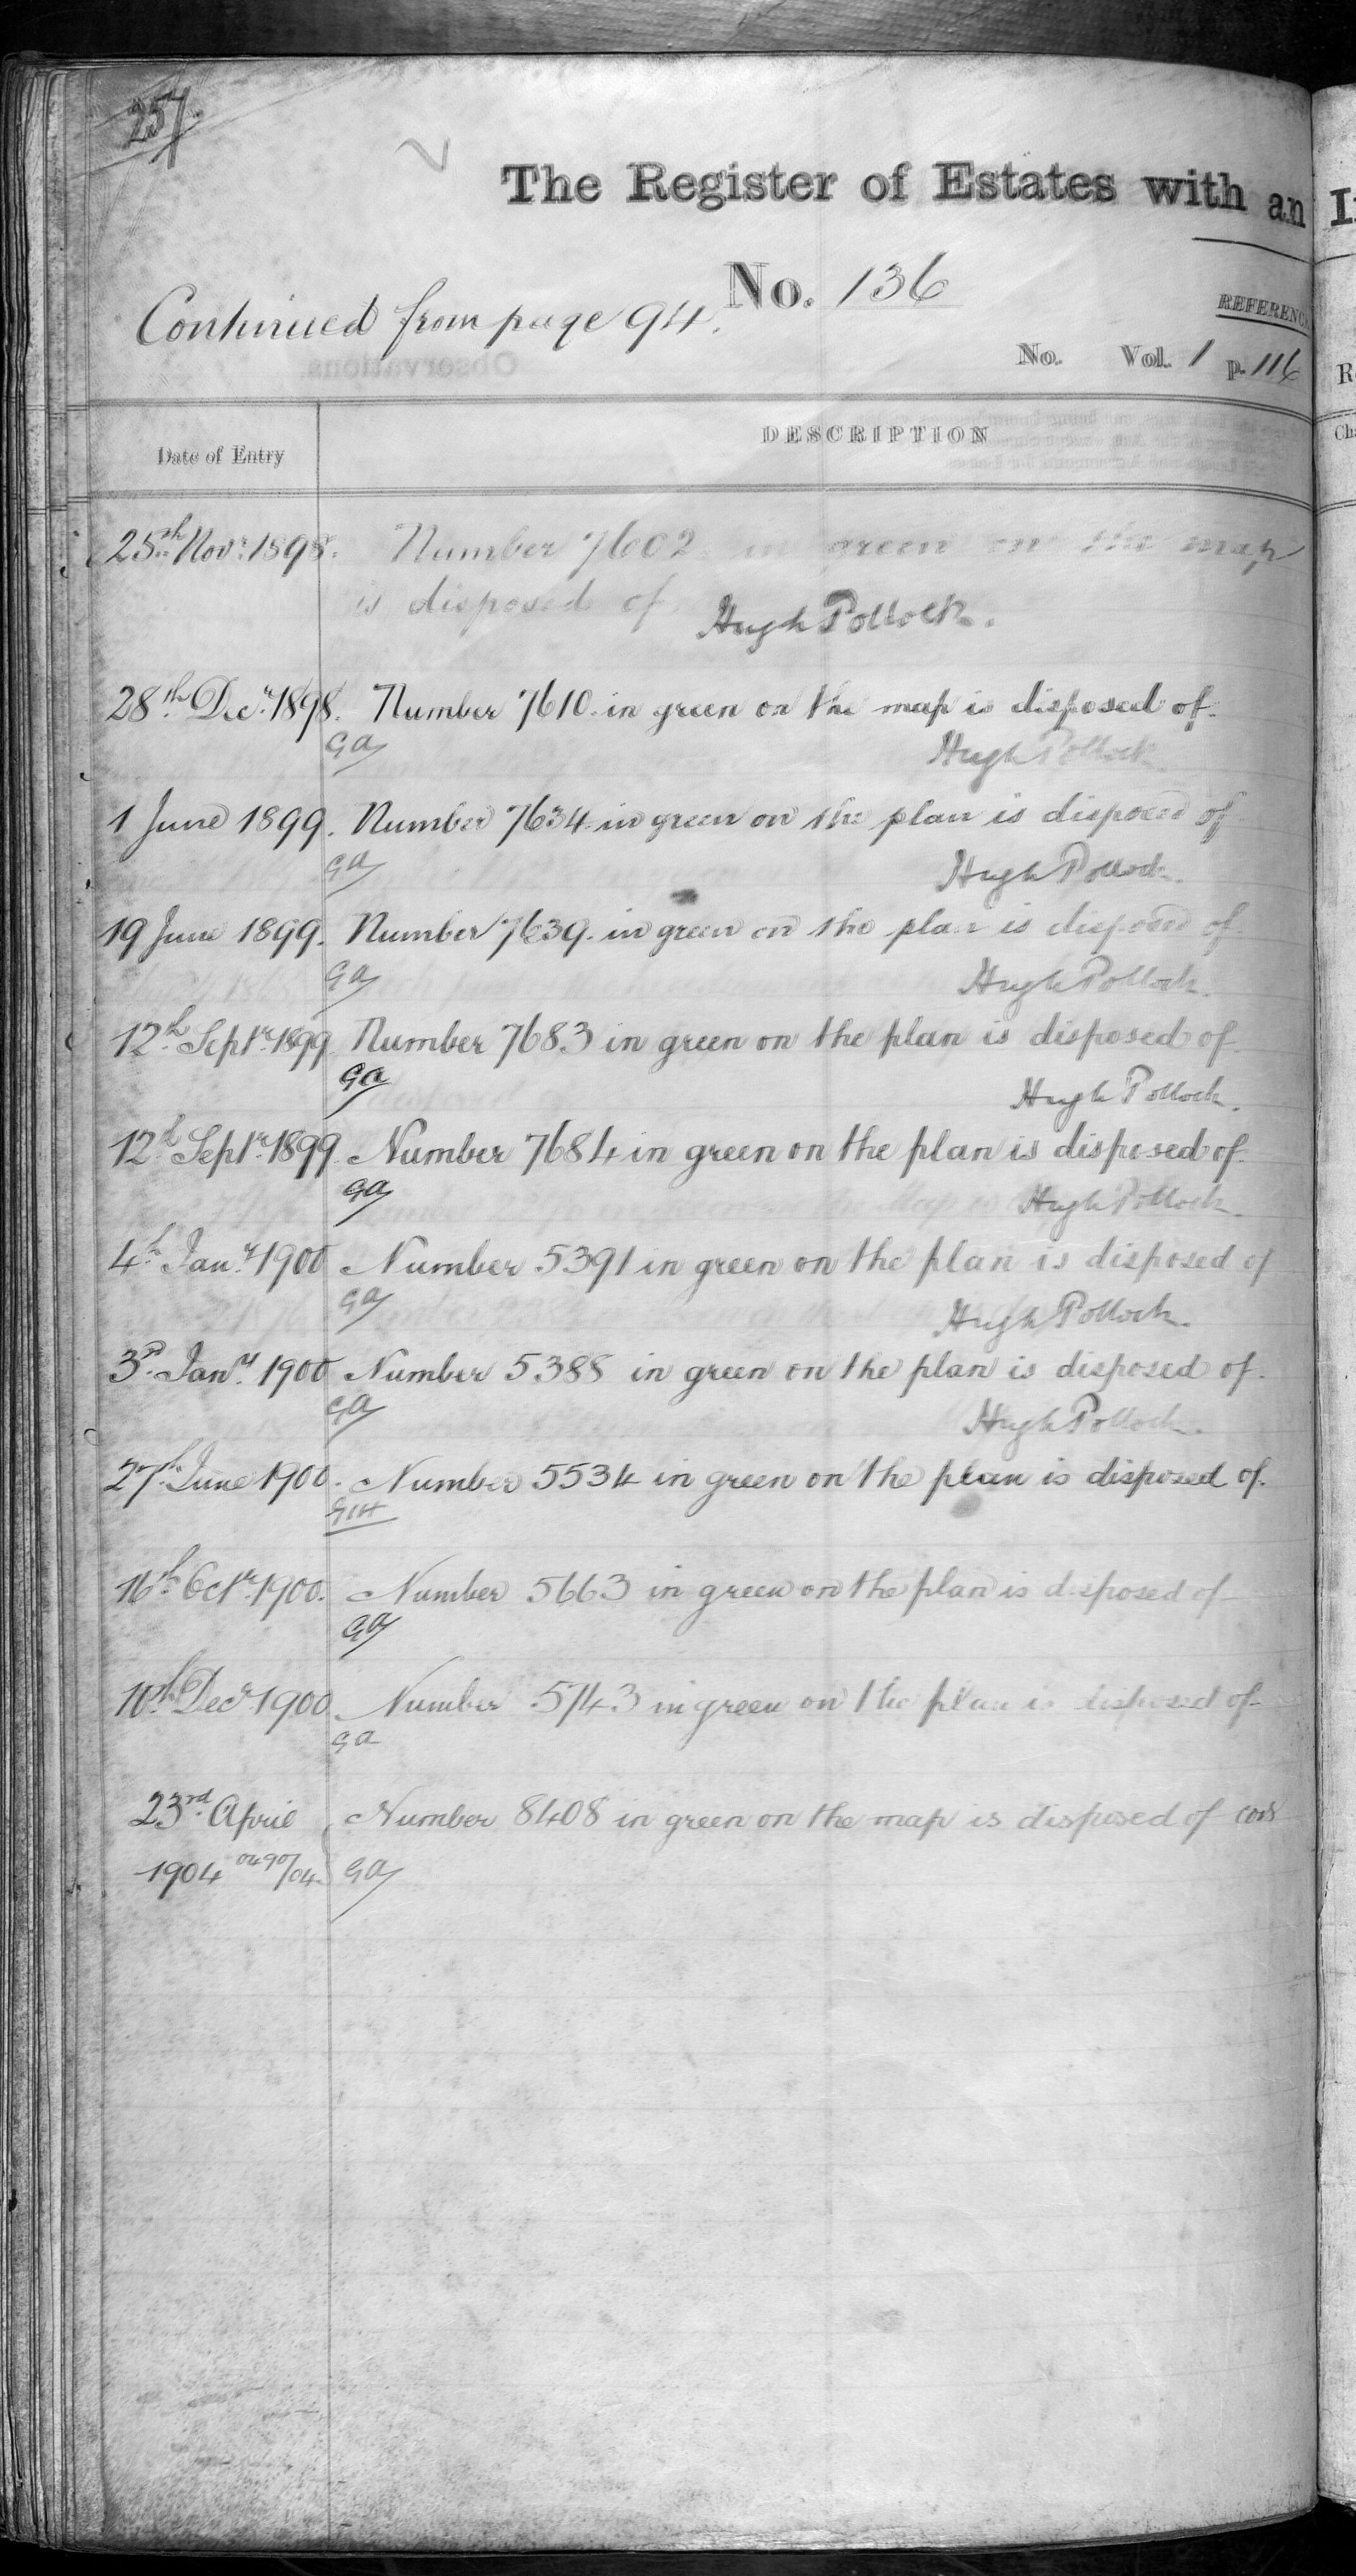 257.
The Register of Estates with an
No. 136
Continued from page 94.
REFERENC
No. Vol. 1 p. 116
Date of Entry
DESCRIPTION
25th Novr. 1898. Number 7602 in green on the map
is disposed of. Hugh Pollock.
28th Decr. 1898. Number 7610 in green on the map is disposed of.
GA Hugh Pollock
1 June 1899. Number 7634 in green on the plan is disposed of
GA Hugh Pollock.
19 June 1899. Number 7639. in green on the plan is disposed of.
GA Hugh Pollock.
12th Septr. 1899 Number 7683 in green on the plan is disposed of.
GA Hugh Pollock.
12th Septr. 1899 Number 7684 in green on the plan is disposed of.
GA Hugh Pollock.
4th Jany. 1900 Number 5391 in green on the plan is disposed of
GA Hugh Pollock.
3rd Jany. 1900 Number 5388 in green on the plan is disposed of.
GA Hugh Pollock.
27th June 1900. Number 5534 in green on the plan is disposed of.
16th Octr. 1900. Number 5663 in green on the plan is disposed of
GA
10th Decr 1900 Number 5743 in green on the plan is disposed of
GA
23rd. April Number 8408 in green on the map is disposed of
1904 0490/04 GA